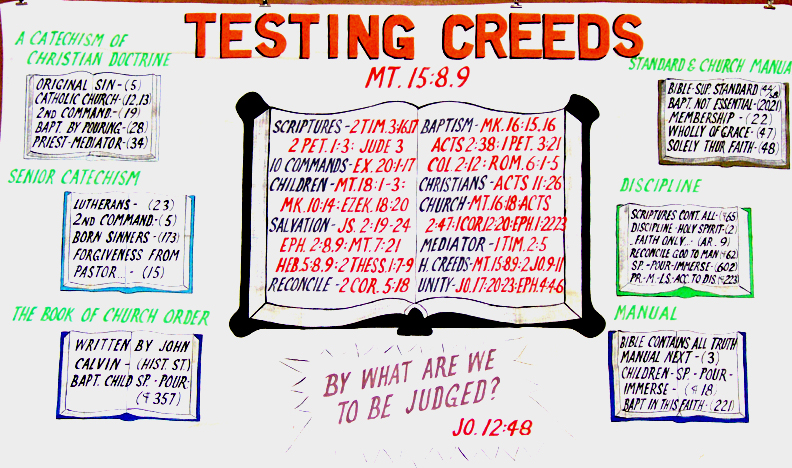 TESTING CREEDS
MT. 15:8.9
A CATECHISM OF
CHRISTIAN DOCTRINE
ORIGINAL SIN-(5)
CATHOLIC CHURCH-(12,13)
2ND COMMAND.-(19)
BAPT. BY POURING-(28)
PRIEST-MEDIATOR-(34)
SENIOR CATECHISM
LUTHERANS - (23)
2ND COMMAND.-(5)
BORN SINNERS-(173)
FORGIVENESS FROM
PASTOR... - (15)
THE BOOK OF CHURCH ORDER
WRITTEN BY JOHN
CALVIN - (HIST. ST)
BAPT. CHILD SP.-POUR-
(¶ 357)
SCRIPTURES - 2 TIM. 3:16.17
2 PET. 1:3: JUDE 3
10 COMMANDS-EX. 20:1-17
CHILDREN-MT. 18:1-3:
MK. 10:14: EZEK. 18:20
SALVATION- JS. 2:19-24
EPH. 2:8.9: MT. 7:21
HEB. 5:8.9: 2 THESS. 1:7-9
RECONCILE - 2 COR. 5:18
BAPTISM- MK. 16:15.16
ACTS 2:38: 1 PET. 3:21
COL. 2:12: ROM. 6:1-5
CHRISTIANS-ACTS 11:26
CHURCH-MT. 16:18:ACTS
2:47:1COR.12:20:EPH.1:22.23
MEDIATOR - 1 TIM. 2:5
H. CREEDS-MT.15:8.9:2 JO.9-11
UNITY-JO.17:20-23:EPH.4:4-6
BY WHAT ARE WE
TO BE JUDGED?
JO. 12:48
STANDARD & CHURCH MANUA
BIBLE-SUP. STANDARD
BAPT. NOT ESSENTIAL-(20.21)
MEMBERSHIP - (22)
WHOLLY OF GRACE-(47)
SOLELY THUR FAITH-(48)
DISCIPLINE
SCRIPTURES CONT. ALL-(¶65
DISCIPLINE-HOLY SPIRIT-(2)
FAITH ONLY...-(AR. 9)
RECONCILE GOD TO MAN-(¶62)
SP.-POUR-IMMERSE-(602)
PR.-M.-LS.-ACC. TO DIS-(¶223)
MANUAL
BIBLE CONTAINS ALL TRUTH
MANUAL NEXT-(3)
CHILDREN-SP.-POUR-
IMMERSE - (¶ 18)
BAPT IN THIS FAITH-(221)